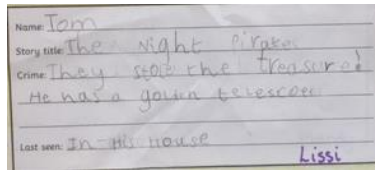 Name: Tom
Story title: The Night Pirates
Crime: They stole the treasure!
He has a goldn telescope
Last seen: In His House
Lissi